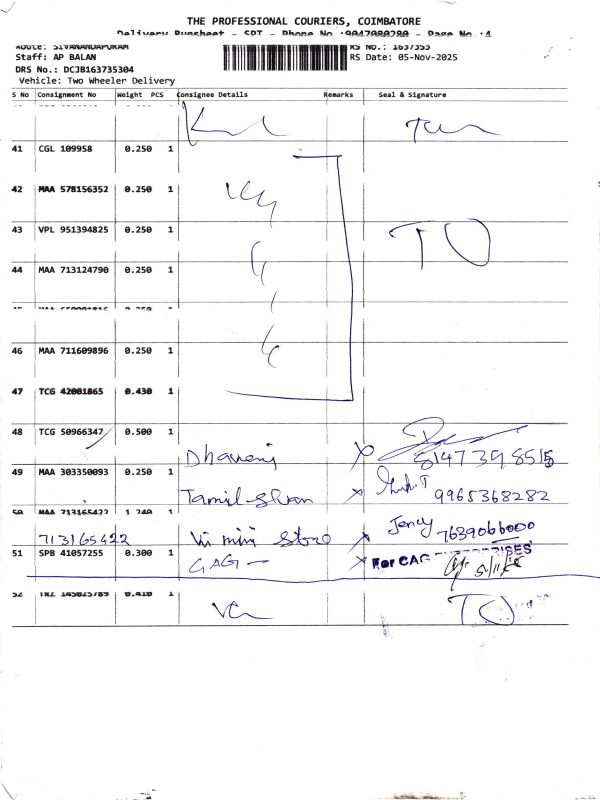 THE PROFESSIONAL COURIERS, COIMBATORE
Delivery Runsheet - SPT - Phone No :9047080280 - Page No :4
Route: SIVANANDAPURAM RS NO.: 1637353
Staff: AP BALAN RS Date: 05-Nov-2025
DRS No.: DCJB163735304
Vehicle: Two Wheeler Delivery
S No Consignment No Weight PCS Consignee Details Remarks Seal & Signature
41 CGL 109958 0.250 1
42 MAA 578156352 0.250 1
43 VPL 951394825 0.250 1
TO
44 MAA 713124790 0.250 1
46 MAA 711609896 0.250 1
47 TCG 42001865 0.430 1
48 TCG 50966347 0.500 1
8147398515
49 MAA 303350093 0.250 1
9965368282
50 MAA 713165422 1.240 1
713165422 store Jency 7639066000
51 SPB 41057255 0.300 1
GAG - For CAG ENTERPRISES
52 TRZ 145025789 0.410 1
TO